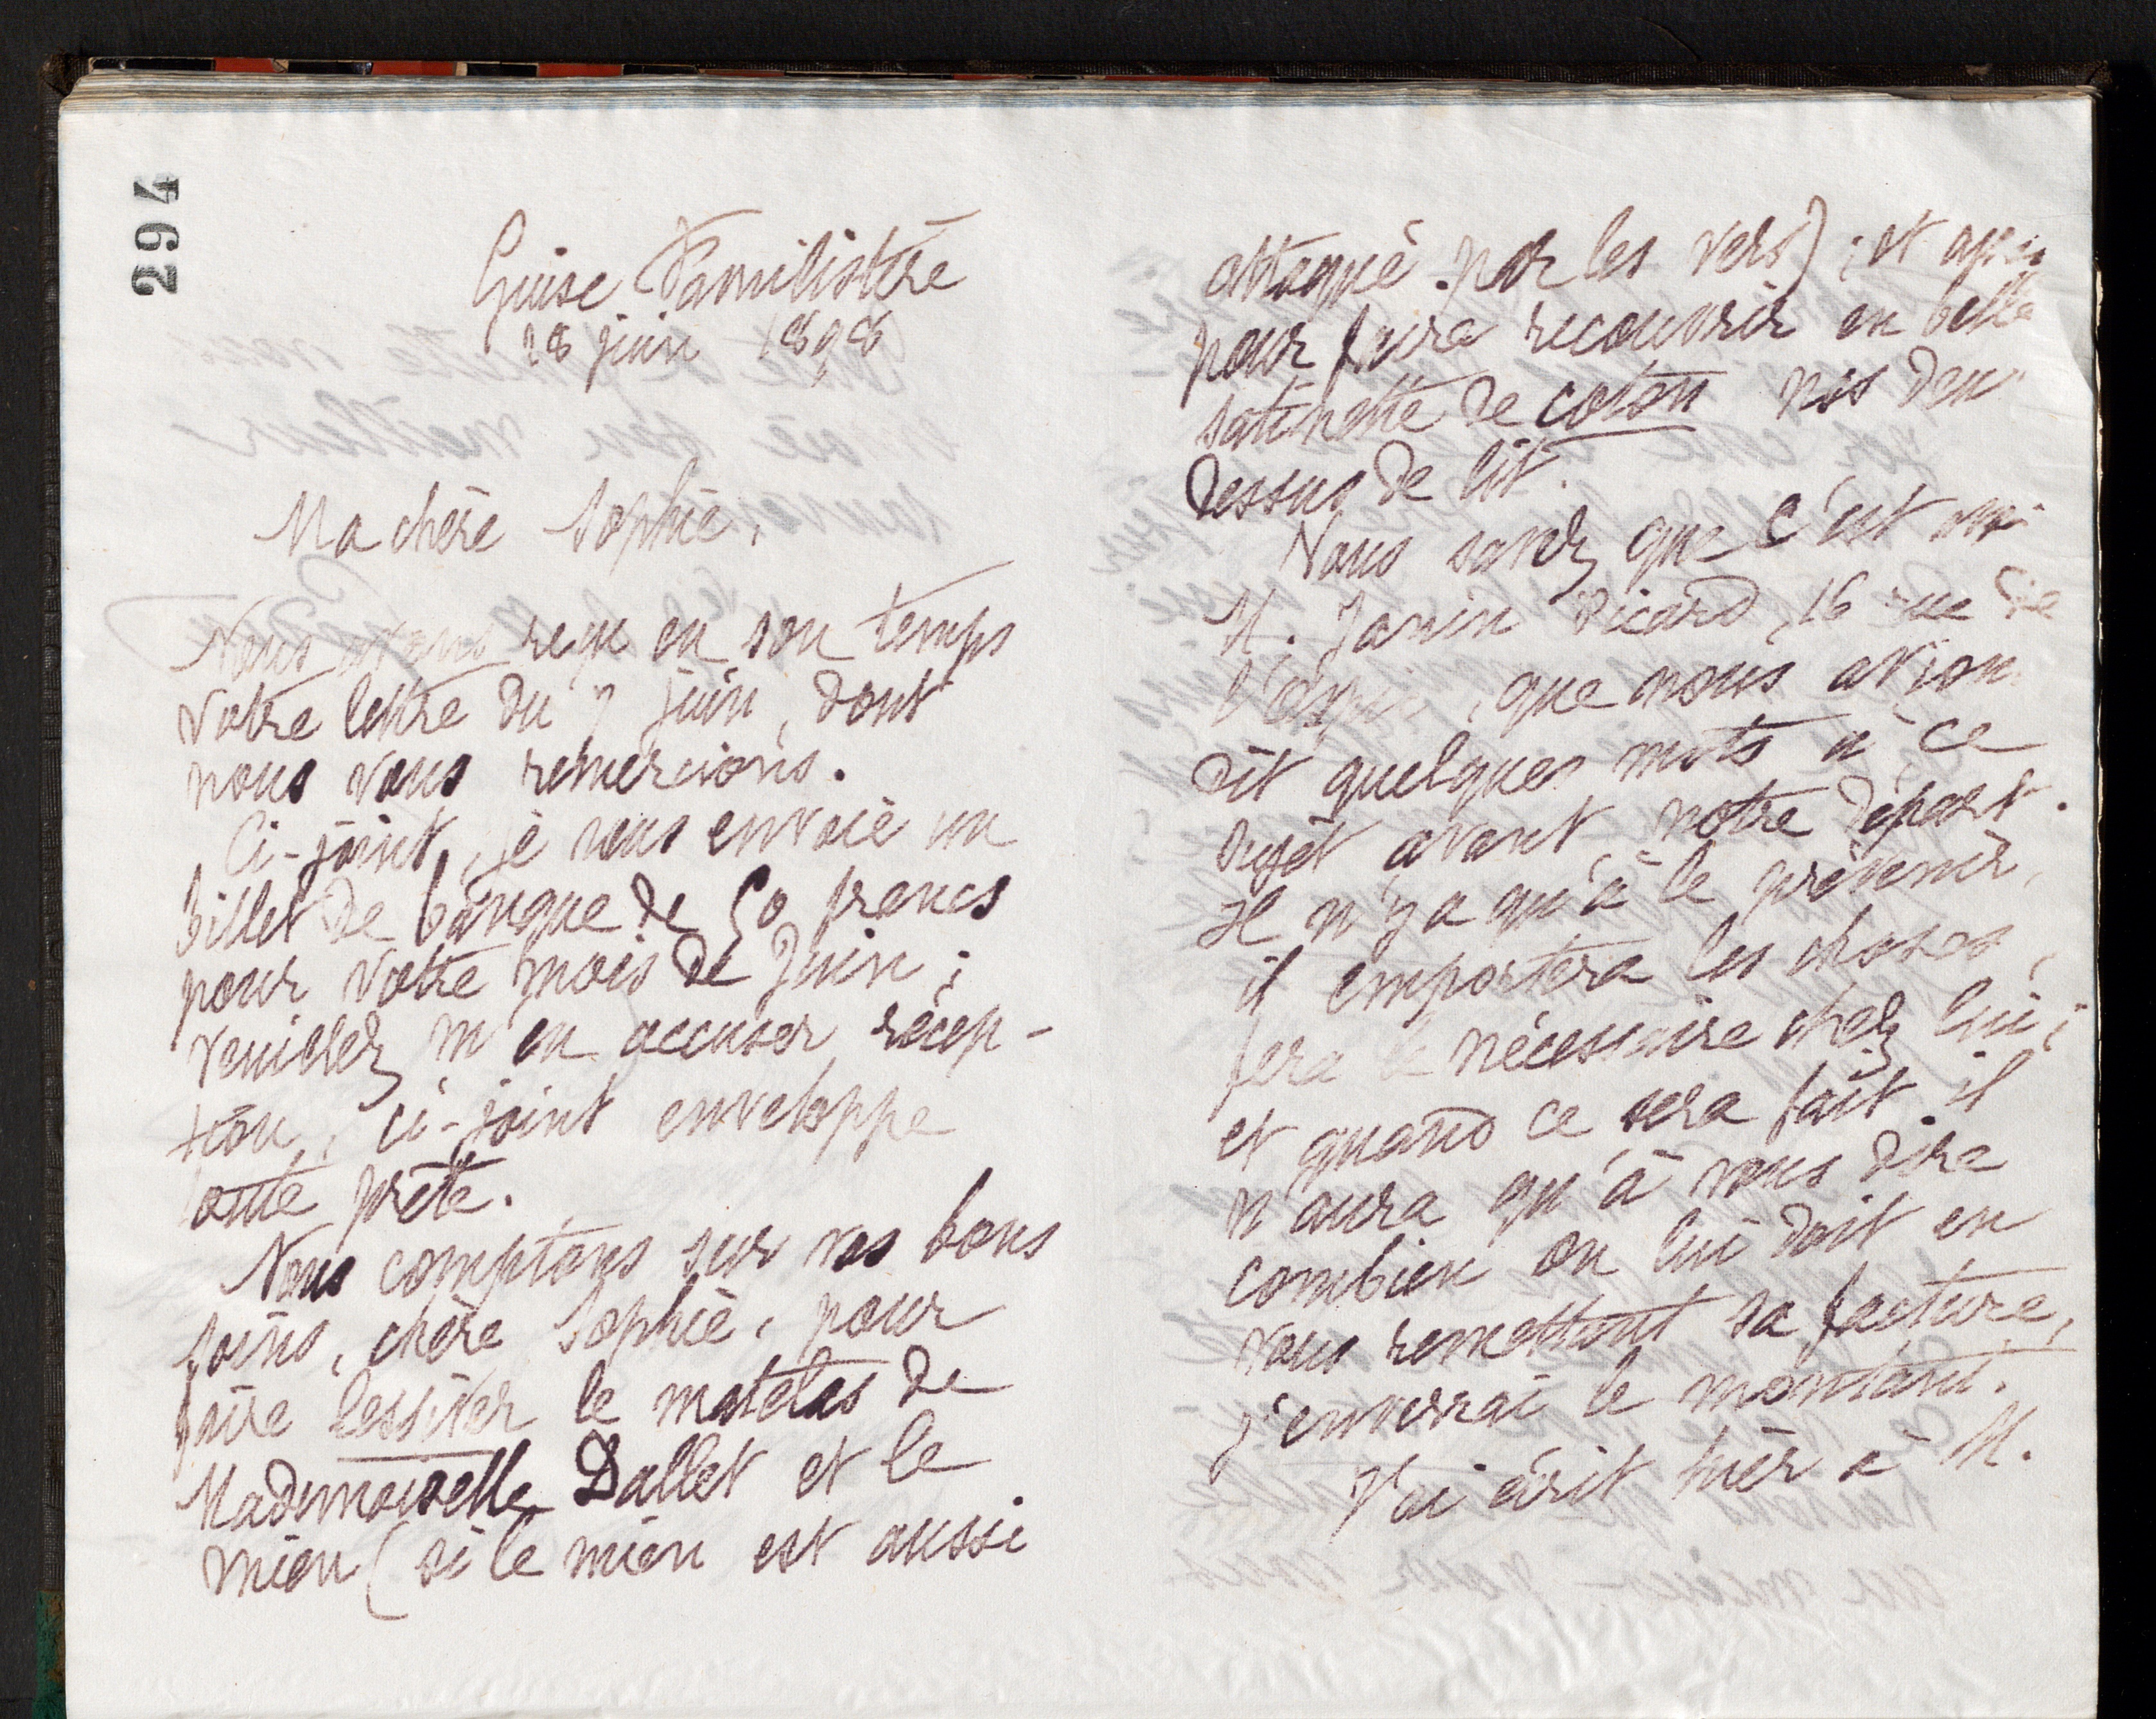 294
Guise Familistère
28 juin 1898
Ma chère Sophie,
Nous avons reçu en son temps
votre lettre du 7 juin, dont
nous vous remercions.
Ci-joint, je vous envoie un
billet de banque de 50 francs
pour votre mois de Juin ;
veuillez m'en accuser récep-
tion, ci-joint enveloppe
toute prête.
Nous comptons sur vos bons
soins, chère Sophie, pour
faire lessiver le matelas de
Mademoiselle Dallet et le
mien (si le mien est aussi
attaqué par les vers) ; et aussi
pour faire recouvrir en belle
satinette de coton nos deux
dessus de lit.
Vous savez que c'est
M. Janin Picard, 16 rue de
que nous avions
dit quelques mots à ce
sujet avant notre départ.
Il n'y a qu'à le prévenir,
il emportera les choses,
fera le nécessaire chez lui ;
et quand ce sera fait il
n'aura qu'à vous dire
combien on lui doit en
vous remettant sa facture,
j'enverrai le montant.
J'ai écrit hier à M.